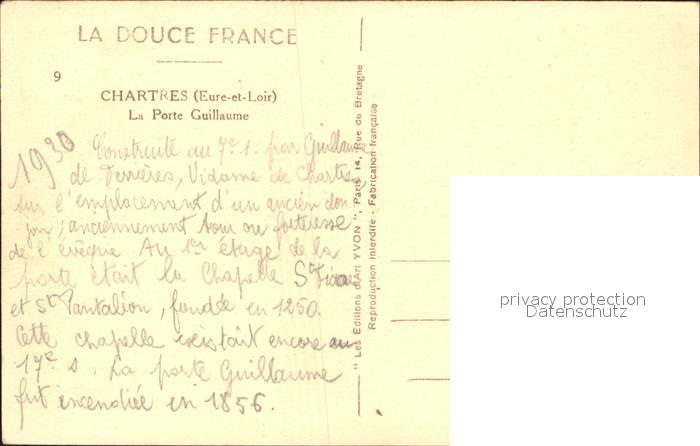 LA DOUCE FRANCE
9
CHARTRES (Eure-et-Loir)
La Porte Guillaume
1930
Construite au 7e s. par Guillaume
de Ferrières, Vidame de Chartres
sur l'emplacement d'un ancien don
jon, anciennement tour ou forteresse
de l'évêque. Au 1er étage de la
porte était la Chapelle St
et St Pantaléon, fondée en 1250.
Cette chapelle existait encore au
17e s. La porte Guillaume
fut incendiée en 1856.
" Les Editions d'Art YVON ", Paris 14, Rue de Bretagne
Reproduction interdite - Fabrication française
privacy protection
Datenschutz